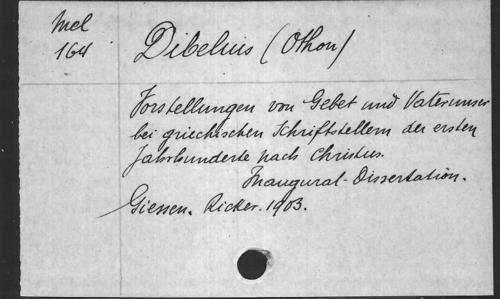 Mel
164
Dibelius (Othon)
Vorstellungen von Gebet und Vaterunser
bei griechischen Schriftstellern der ersten
Jahrhunderte nach Christus.
Inaugural-Dissertation.
Giessen. Ricker. 1903.